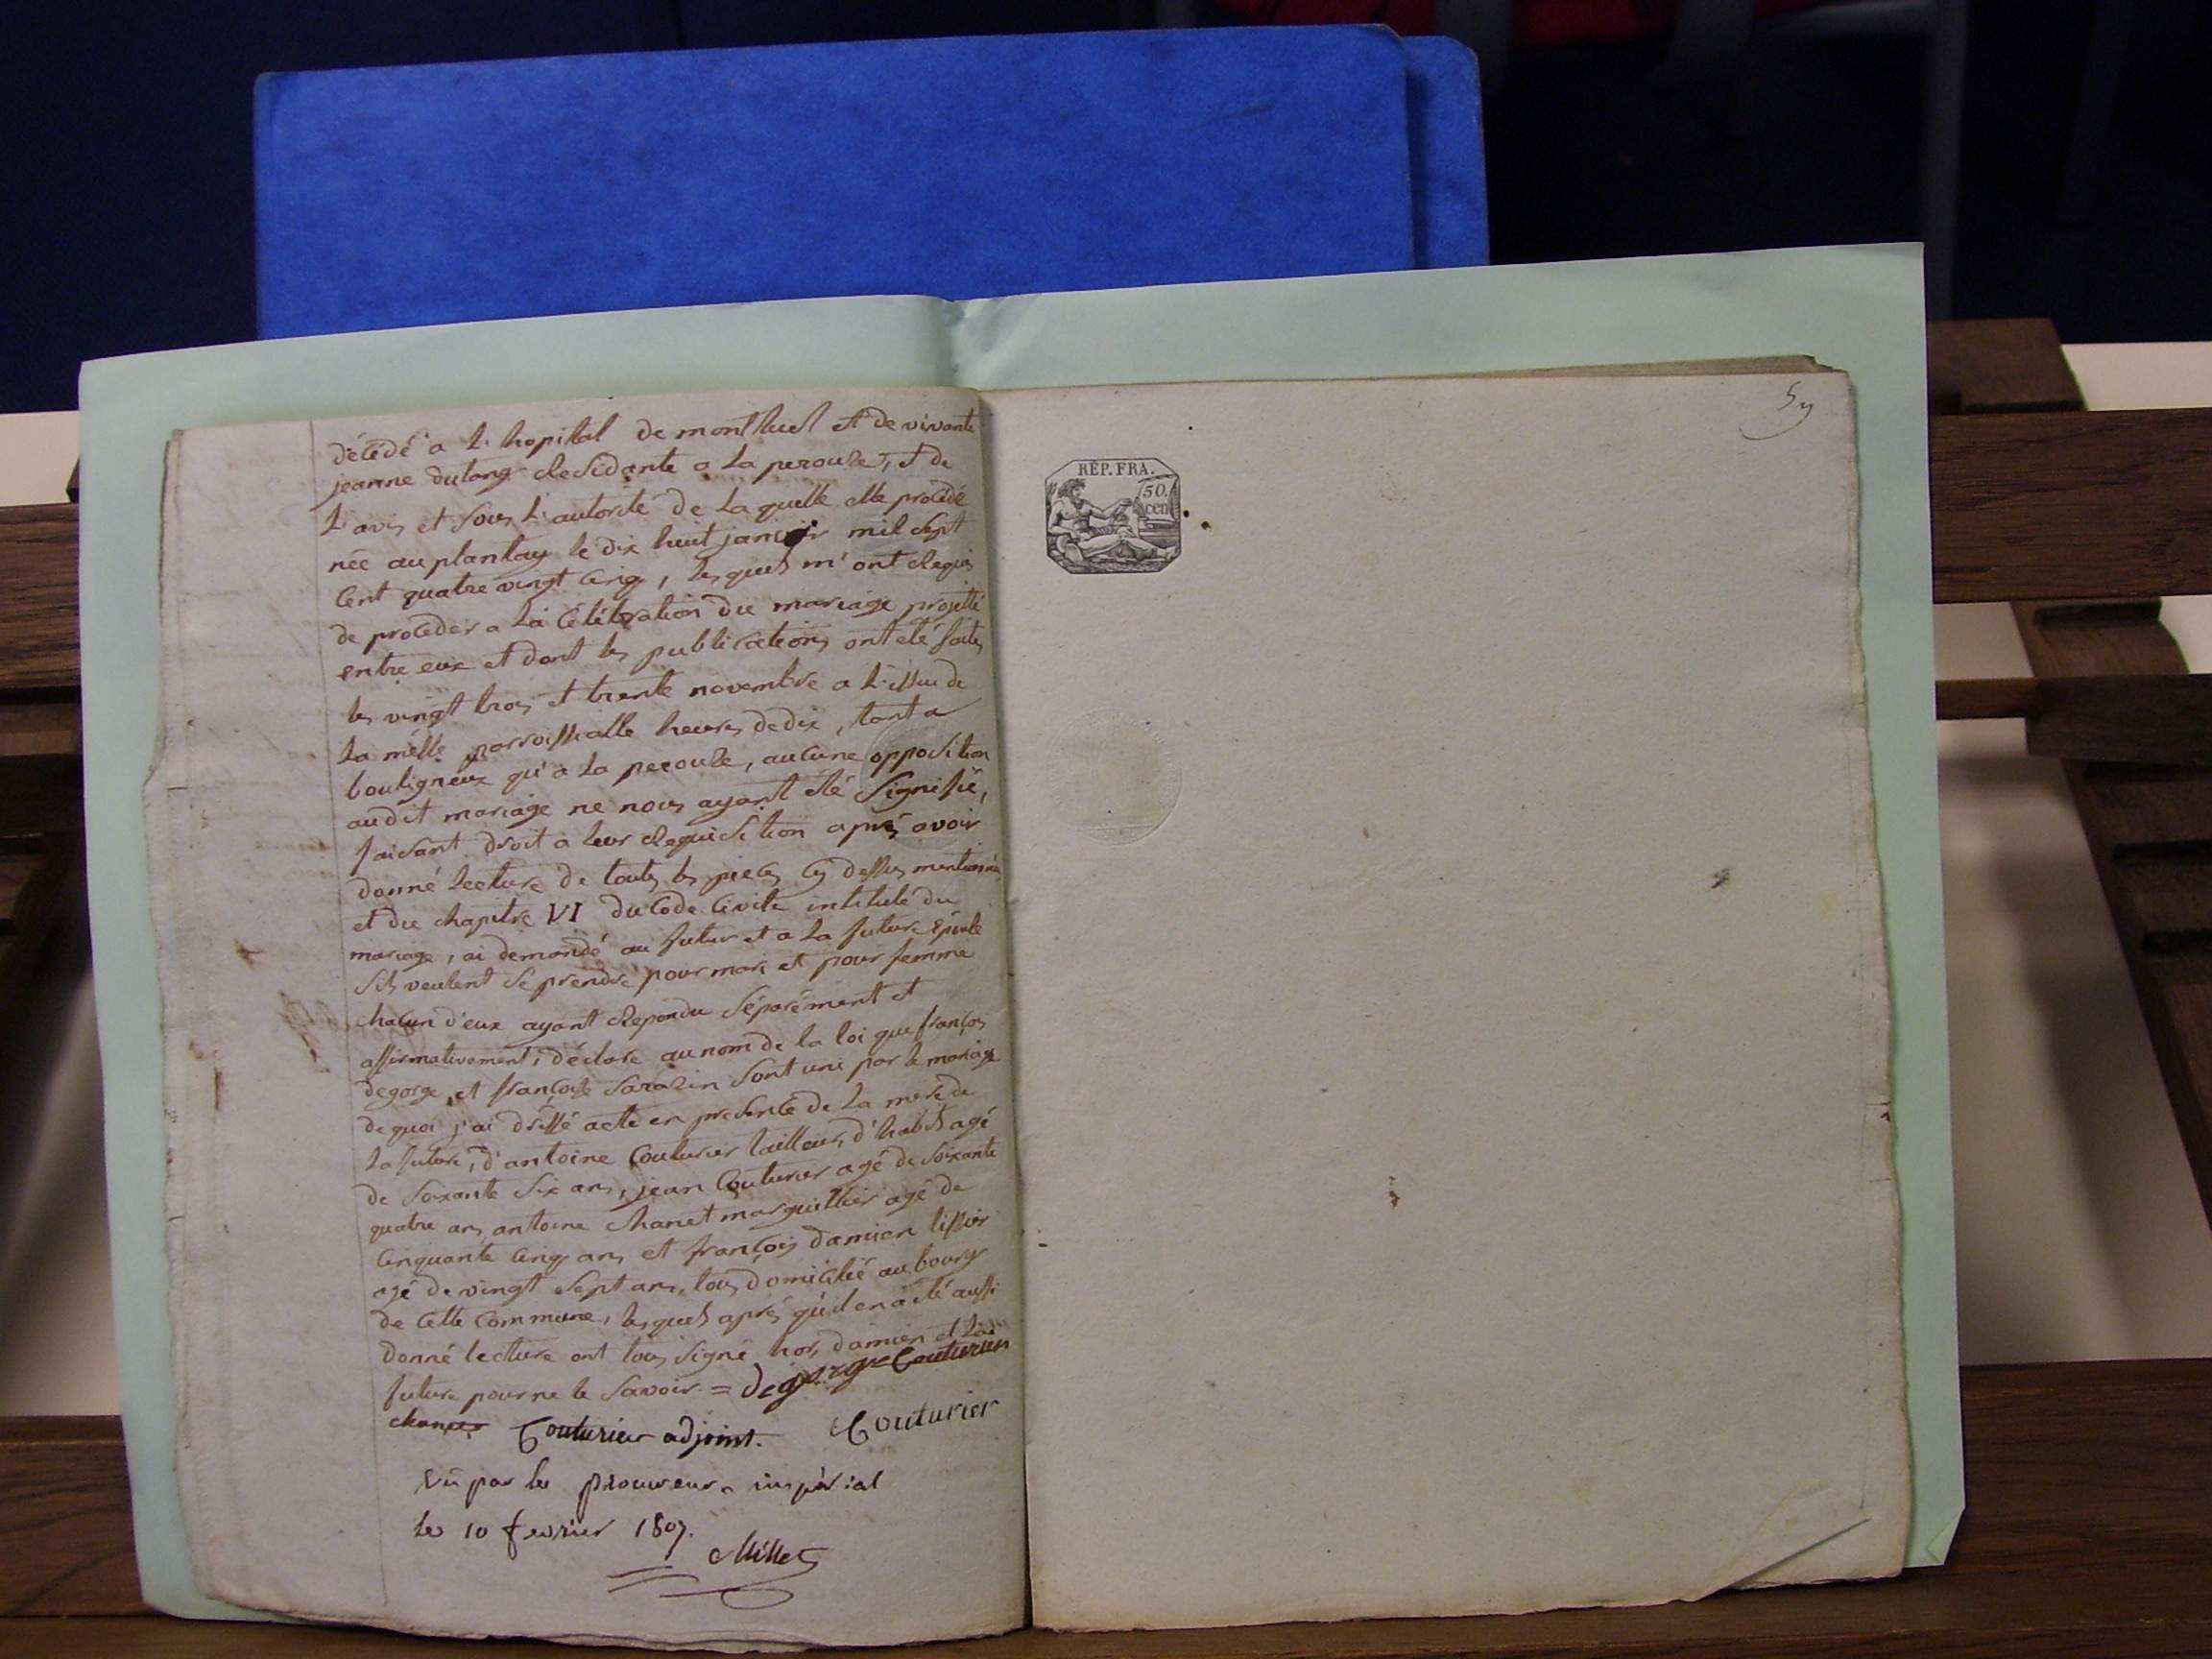 décédé a L'hopital de montluel et de vivante
jeanne dutang Residante a La perouse, et de
L'avis et sous L'autorité de Laquelle elle procédé
née au plantay le dix huit janvier mil sept
Cent quatre vingt Cinq, lesquels m'ont Requis
de proceder a La Célébration du mariage projetté
entre eux et dont les publications ont été faites
les vingt trois et trente novembre a L'issue de
La messe parroissialle heures de dix, tant a
bouligneux qu'a La perouse, aucune opposition
audit mariage ne nous ayant été Signifiée,
faisant droit a leur Requisition après avoir
donné Lecture de toutes les pieces Cy dessus mentionnées
et du chapitre VI du Code Civile intitulé du
mariage, ai demandé au futur et a La future Epouse
S'ils veulent Se prendre pour mari et pour femme
chacun d'eux ayant Repondu Séparément et
affirmativement, déclare au nom de la loi que françois
degorge et françoise Sarazin Sont unis par le mariage
de quoi j'ai dréssé acte en présence de La mere de
La future, d'antoine Couturier tailleur d'habits agé
de Soixante Six ans, jean Couturier agé de Soixante
quatre ans antoine Chanet marguillier agé de
Cinquante Cinq ans et françois damien tissier
agé de vingt Sept ans, tous domicilié au bourg
de Cette Commune, lesquels après qu'il en a été aussi
donné lecture ont tous Signé hors damien et La
future pour ne le Savoir = degorge Couturier
chanet Couturier adjoint. Couturier
Vu par le procureur impérial
le 10 fevrier 1807.
Millet
59
RÉP. FRA.
50.
cen